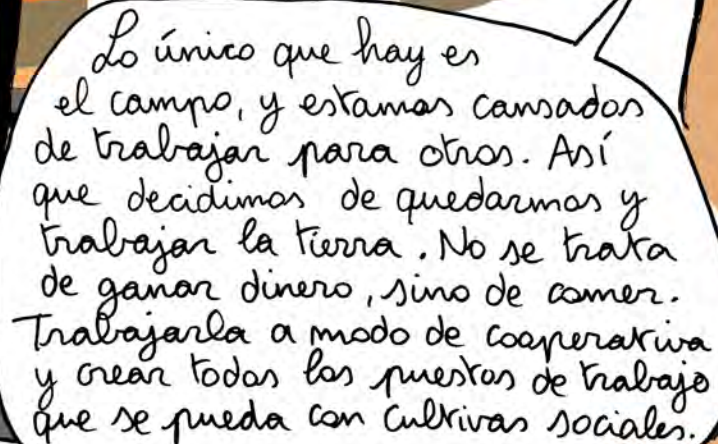 Lo único que hay es
el campo, y estamos cansados
de trabajar para otros. Así
que decidimos de quedarnos y
trabajar la tierra. No se trata
de ganar dinero, sino de comer.
Trabajarla a modo de cooperativa
y crear todos los puestos de trabajo
que se pueda con cultivos sociales.